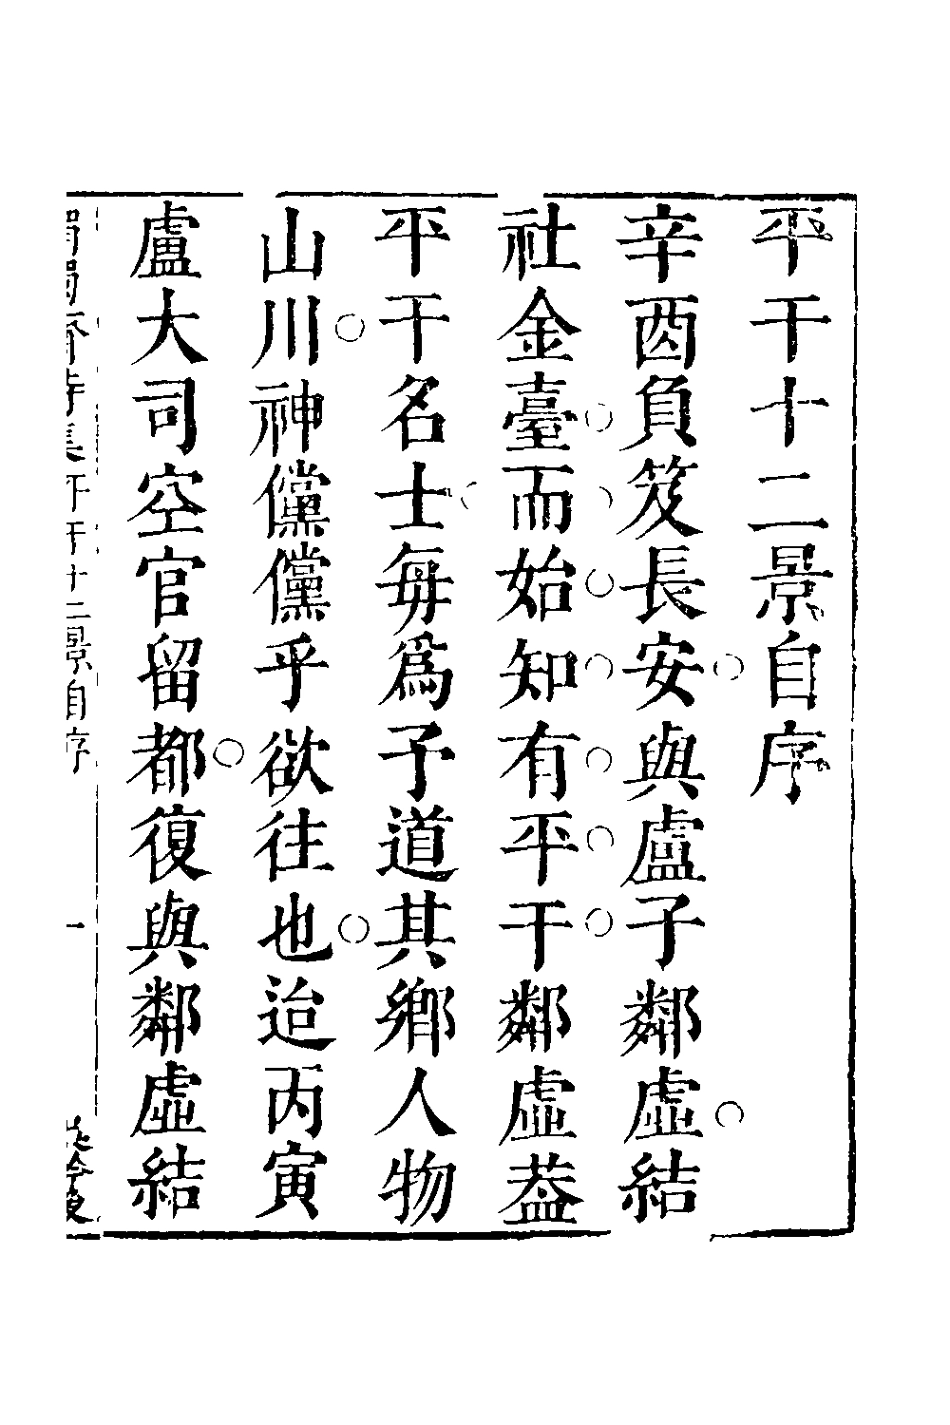 平干十二景自序
辛酉負笈長安與盧子鄰虛結
社金臺而始知有平干鄰虛葢
平干名士每爲予道其鄉人物
山川神儻儻乎欲往也迨丙寅
盧大司空官留都復與鄰虛結
齋詩集平干十二景自序
一